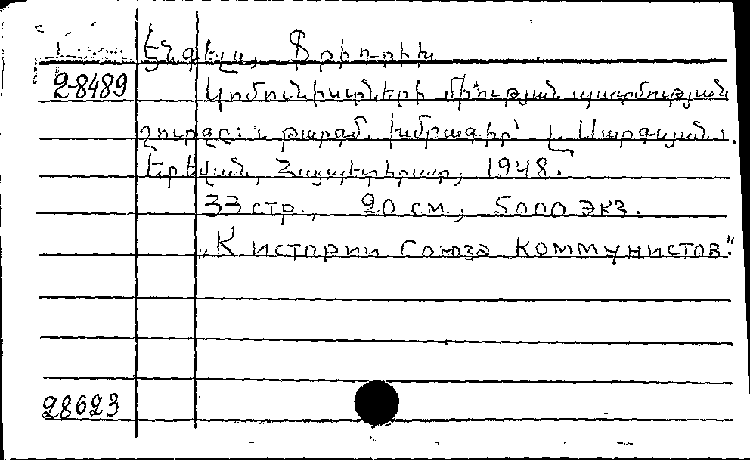 Էնգելս, Ֆրիդրիխ
28489 Կոմունիստների միության պատմության
շուրջը: Թարգմ. խմբագիր՝ Լ. Սարգսյան.
Երևան, Հայպետհրատ, 1948.
33 стр., 20 см, 5000 экз.
"К истории Союза коммунистов".
28623